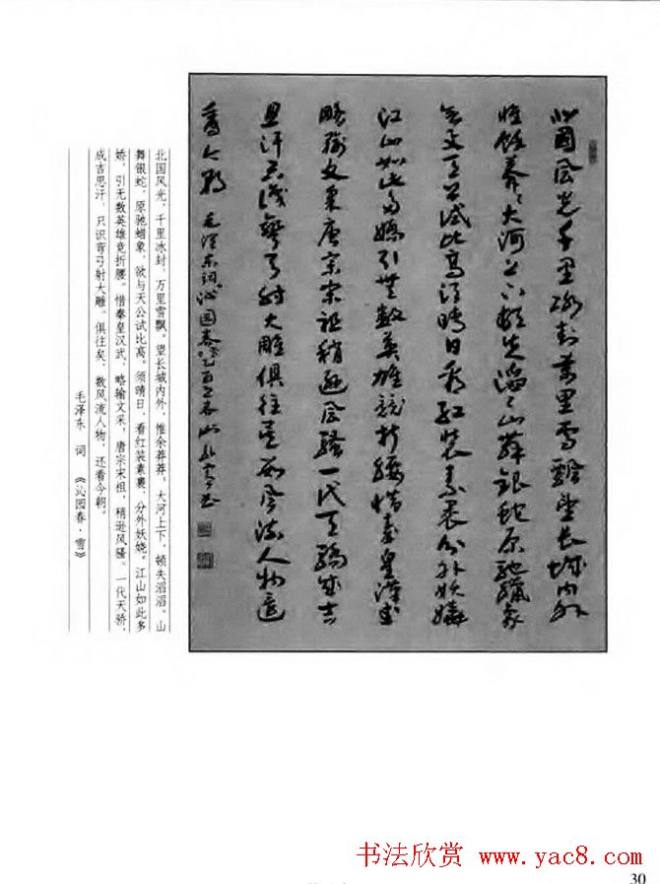 北國風光千里冰封萬里雪飄望長城內外
惟餘莽〻大河上下頓失滔〻山舞銀蛇原馳蠟象
欲與天公試比高須晴日看紅裝素裹分外妖嬈
江山如此多嬌引無數英雄競折腰惜秦皇漢武
略輸文采唐宗宋祖稍遜風騷一代天驕成吉
思汗只識彎弓射大雕俱往矣數風流人物還
看今朝 毛澤東詞沁園春雪乙酉之春 書
北国风光，千里冰封，万里雪飘。望长城内外，惟余莽莽，大河上下，顿失滔滔。山
舞银蛇，原驰蜡象，欲与天公试比高。须晴日，看红装素裹，分外妖娆。江山如此多
娇，引无数英雄竞折腰。惜秦皇汉武，略输文采，唐宗宋祖，稍逊风骚。一代天骄，
成吉思汗，只识弯弓射大雕。俱往矣，数风流人物，还看今朝。
毛泽东 词 《沁园春·雪》
书法欣赏 www.yac8.com
30